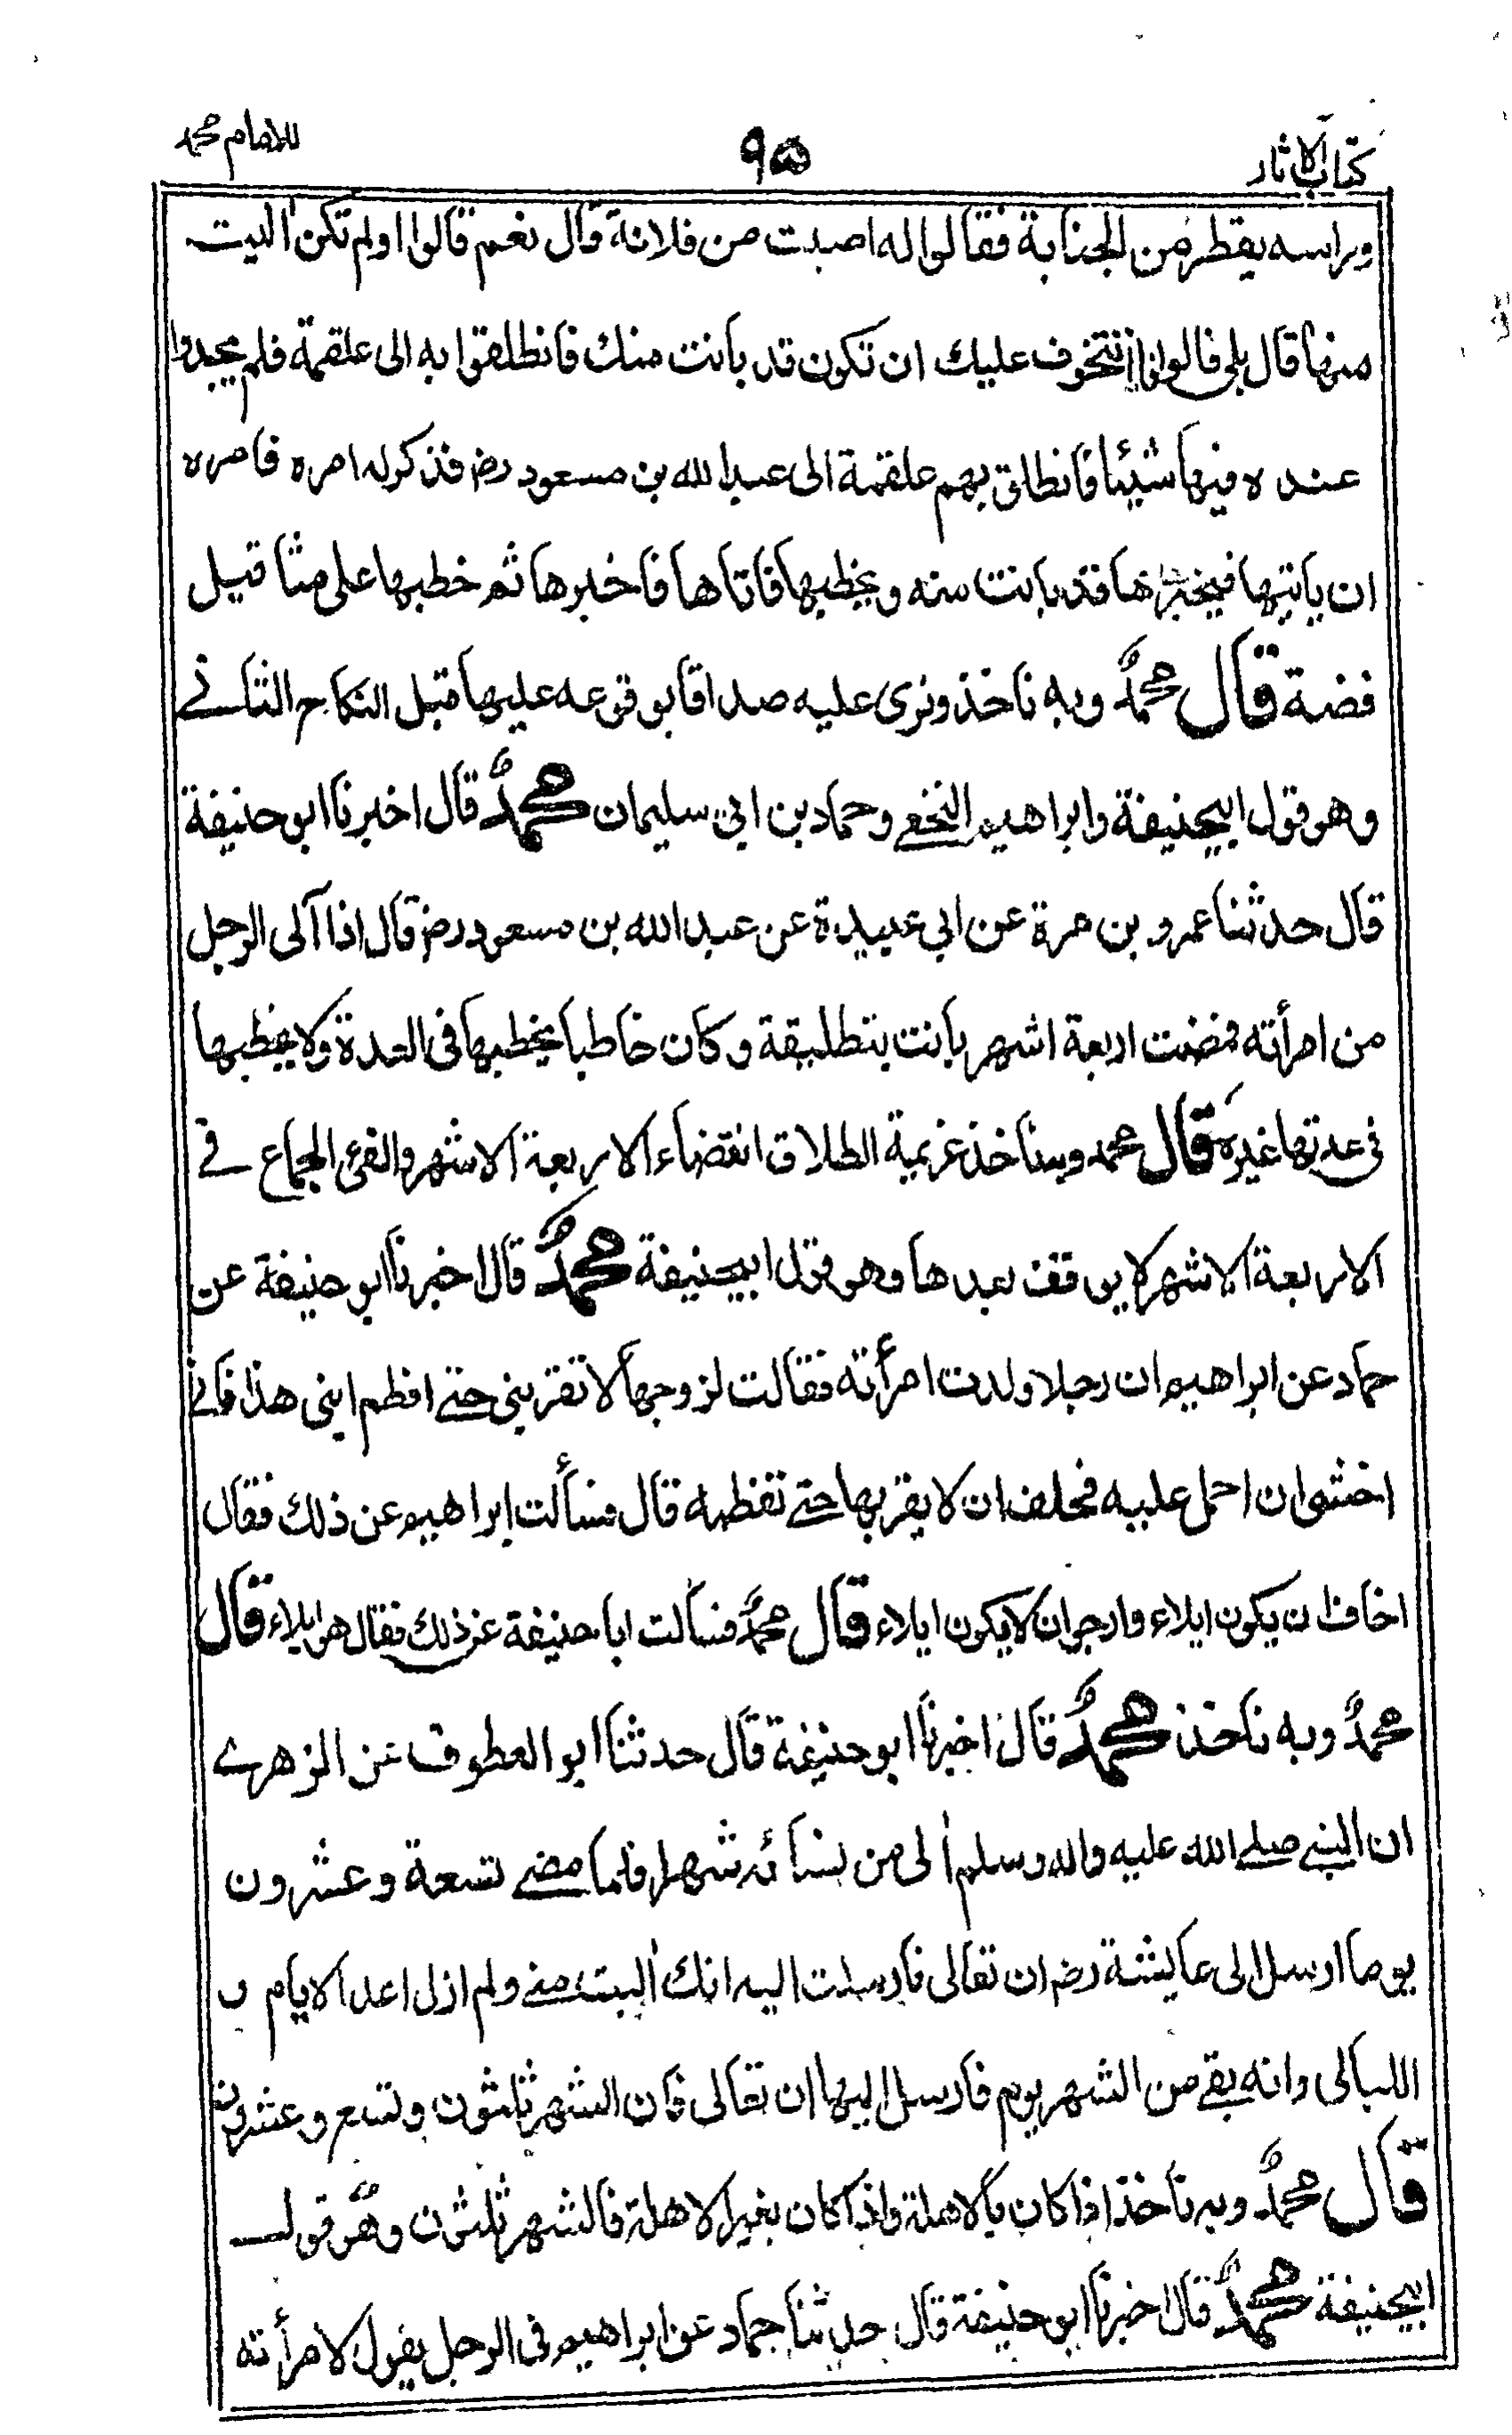 كتاب الاثار
٩۵
للامام محمد
وراسه يقطر من الجنابة فقالوا له اصبت من فلانة قال نعم قالوا اولم تكن اٰليت
منها قال بلى قالوا انا نتخوف عليك ان تكون قد بانت منك فانطلقوا به الى علقمة فلم يجدوا
عنده فيها شيئا فانطلق بهم علقمة الى عبد الله بن مسعود رض فذكر له امره فامره
ان ياتيها فيخبرها انها قد بانت منه ويخطبها فاتاها فاخبرها ثم خطبها على مثاقيل
فضة قال محمدٌ وبه ناخذ ونرى عليه صداقا بوقوعه عليها قبل النكاح الثانے
وهو قول ابيحنيفة وابراهيم النخعے وحماد بن ابي سليمان محمدٌ قال اخبرنا ابو حنيفة
قال حدثنا عمرو بن مرة عن ابي عبيدة عن عبد الله بن مسعود رض قال اذا آلى الرجل
من امرأته فمضت اربعة اشهر بانت بتطليقة وكان خاطبا يخطبها فى العدة ولا يخطبها
فى عدتها غيره قال محمد وبهنأخذ عزيمة الطلاق انقضاء الاربعة الاشهر والفئ الجماع فے
الاربعة الاشهر لا يوقف بعدها وهو قول ابيحنيفة محمدٌ قال اخبرنا ابو حنيفة عن
حماد عن ابراهيم ان رجلا ولدت امرأته فقالت لزوجها لا تقربنى حتے افطم ابنى هذا فانے
اخشى ان احمل عليه فحلف ان لا يقربها حتے تفطمه قال فسألت ابراهيم عن ذلك فقال
اخاف ان يكون ايلاء وارجو ان لا يكون ايلاء قال محمدٌ فسألت ابا حنيفة عن ذلك فقال هو ايلاء قال
محمدٌ وبه ناخذ محمدٌ قال اخبرنا ابو حنيفة قال حدثنا ابو العطوف عن الزهرے
ان النبے صلے الله عليه واله وسلم اٰلى من نسائه شهرا فلما مضے تسعة وعشرون
يوما ارسل الى عايشة رض ان تعالى فارسلت اليه انك اٰليت منے ولم ازل اعد الايام و
الليالى وانه بقے من الشهر يوم فارسل اليها ان تعالى فان الشهر ثلثون وتسع وعشرون
قال محمدٌ وبه نأخذ اذا كان بالاهلة واذا كان بغير الاهلة فالشهر ثلثون وهو قول
ابيحنيفة محمدٌ قال اخبرنا ابو حنيفة قال حدثنا حماد عن ابراهيم فى الرجل يقول لامرأته